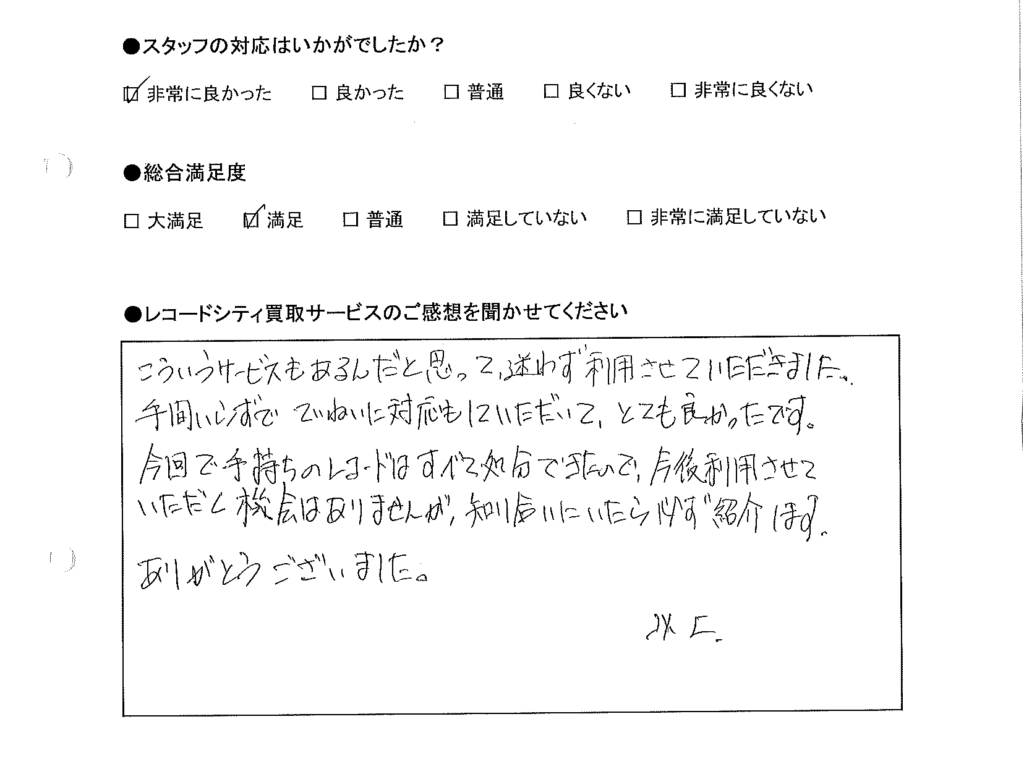 ●スタッフの対応はいかがでしたか？
☑ 非常に良かった □ 良かった □ 普通 □ 良くない □ 非常に良くない
●総合満足度
□ 大満足 ☑ 満足 □ 普通 □ 満足していない □ 非常に満足していない
●レコードシティ買取サービスのご感想を聞かせてください
こういうサービスもあるんだと思って、迷わず利用させていただきました。
手間いらずで ていねいに対応もしていただいて、とても良かったです。
今回で手持ちのレコードはすべて処分できたので、今後利用させて
いただく機会はありませんが、知り合いにいたら必ず紹介します。
ありがとうございました。
以上.